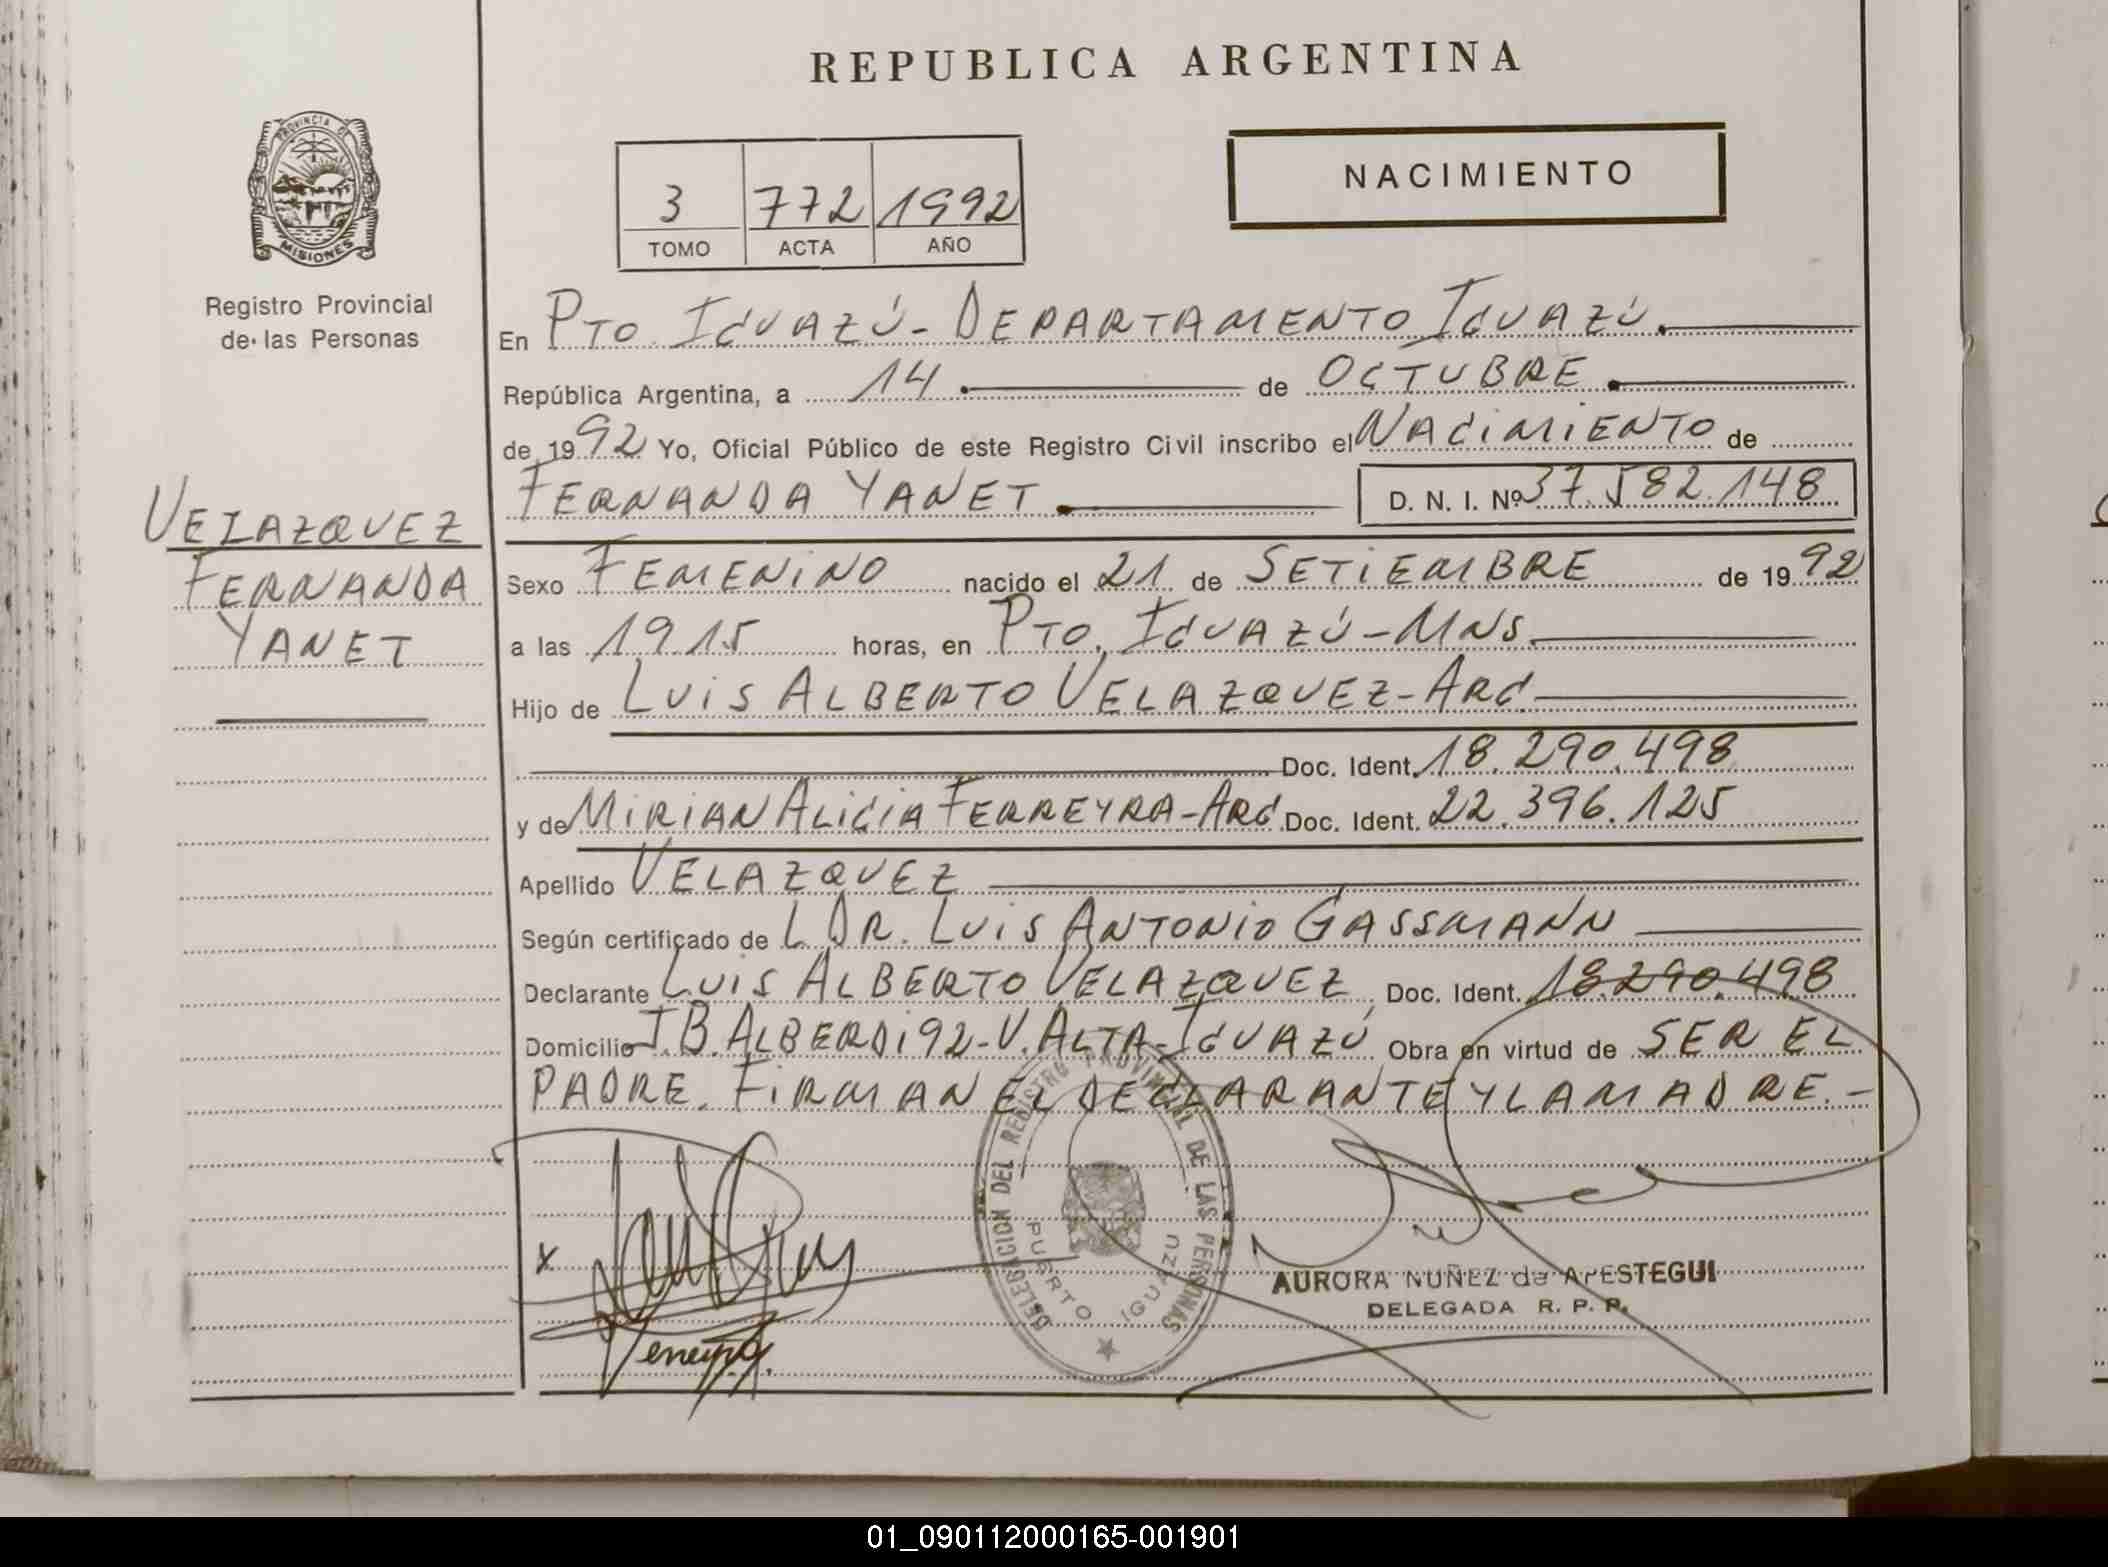 REPUBLICA ARGENTINA
PROVINCIA DE
MISIONES
Registro Provincial
de las Personas
3 772 1992
TOMO ACTA AÑO
NACIMIENTO
En PTO. IGUAZÚ - DEPARTAMENTO IGUAZÚ.
República Argentina, a 14. de OCTUBRE.
de 1992 Yo, Oficial Público de este Registro Civil inscribo el NACIMIENTO de
FERNANDA YANET. D. N. I. Nº 37.582.148
VELAZQUEZ
FERNANDA
YANET
Sexo FEMENINO nacido el 21 de SETIEMBRE de 1992
a las 19.15 horas, en PTO. IGUAZÚ - MNS.
Hijo de LUIS ALBERTO VELAZQUEZ - ARG.
Doc. Ident. 18.290.498
y de MIRIAN ALICIA FERREYRA - ARG. Doc. Ident. 22.396.125
Apellido VELAZQUEZ
Según certificado de L DR. LUIS ANTONIO GASSMANN
Declarante LUIS ALBERTO VELAZQUEZ, Doc. Ident. 18.290.498
Domicilio J.B. ALBERDI 92 - V. ALTA - IGUAZÚ Obra en virtud de SER EL
PADRE. FIRMAN EL DECLARANTE Y LA MADRE. -
DELEGACION DEL REGISTRO PROVINCIAL DE LAS PERSONAS
PUERTO IGUAZU
x
AURORA NUÑEZ de APESTEGUI
DELEGADA R. P. P.
01_090112000165-001901